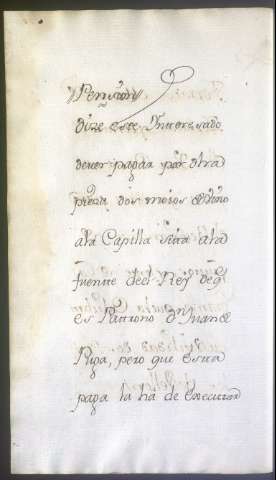 Pension
Dize este Ynteresado
dever pagar por otra
pieza dos moios de vino
ala Capilla sita ala
fuente deel Rey de q̃
es Patrono Dn Juan de
Puga, pero que esta
paga la ha de executar